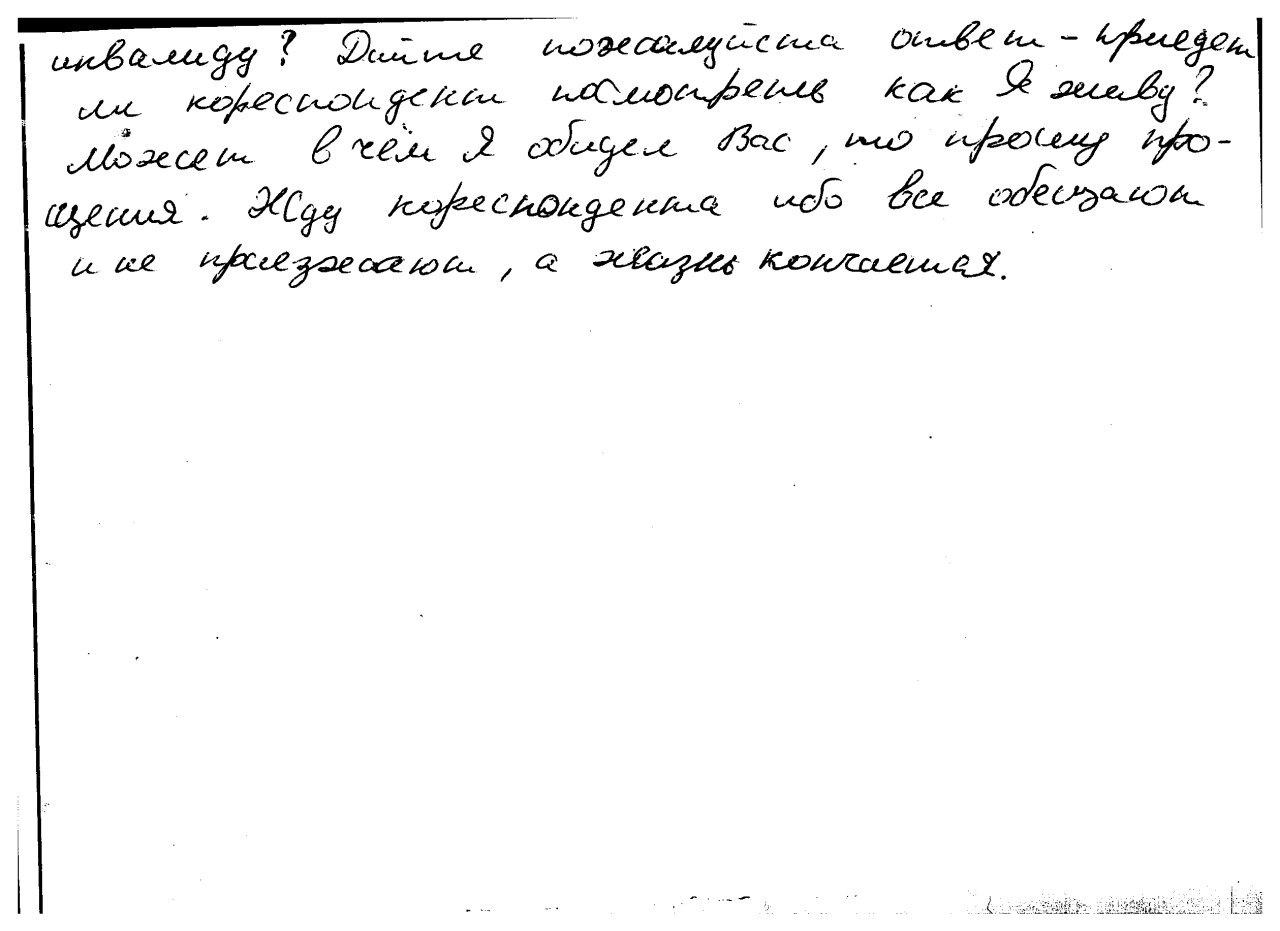 инвалиду? Дайте пожалуйста ответ - приедет
ли кореспондент посмотреть как Я живу?
Может в чём Я обидел Вас, то прошу про-
щения. Жду кореспондента ибо все обещают
и не приезжают, а жизнь кончается.